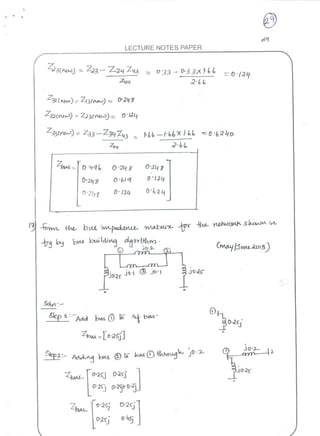 29
LECTURE NOTES PAPER
Z23(new) = Z23 - Z24 Z43 / Z44 = 0.33 - 0.33×1.66 / 2.66 = 0.124
Z31(new) = Z13(new) = 0.248
Z32(new) = Z23(new) = 0.124
Z33(new) = Z33 - Z34 Z43 / Z44 = 1.66 - 1.66×1.66 / 2.66 = 0.6240
Zbus = 0.496 0.248 0.248
0.248 0.619 0.124
0.248 0.124 0.624
17) Form the bus impedance matrix for the network shown in
fig by bus building algorithm. (May/June 2013)
j0.2
j0.25 j0.1 j0.1 j0.25
Soln:-
Step 1:- Add bus ① to ref bus.
Zbus = [0.25j]
0.25j
Step 2:- Adding bus ② to bus ① through j0.2
j0.2
2
j0.25
Zbus = 0.25j 0.25j
0.25j 0.25j+0.2j
Zbus = 0.25j 0.25j
0.25j 0.45j